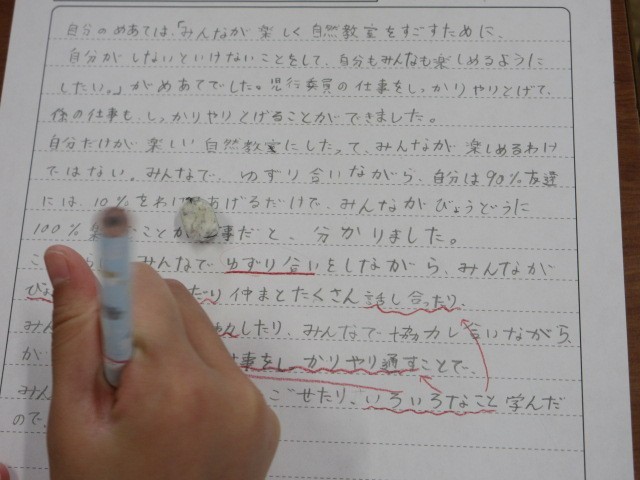 自分のめあては、「みんなが楽しく自然教室をすごすために、
自分がしないといけないことをして、自分もみんなも楽しめるように
したい。」がめあてでした。児行委員の仕事をしっかりやりとげて、
係の仕事も、しっかりやりとげることができました。
自分だけが楽しい自然教室にしたって、みんなが楽しめるわけ
ではない。みんなで、ゆずり合いながら、自分は90%友達
には、10%をわけ あげるだけで、みんながびょうどうに
100%楽 ことが 事だと、分かりました。
こ みんなで ゆずり合いをしながら、みんなが
びょ たり 仲まとたくさん話し合ったり、
みん 力したり、みんなで協力し合いながら、
が 事をしっかりやり通すことで、
みん ごせたり、いろいろなこと学んだ
ので、